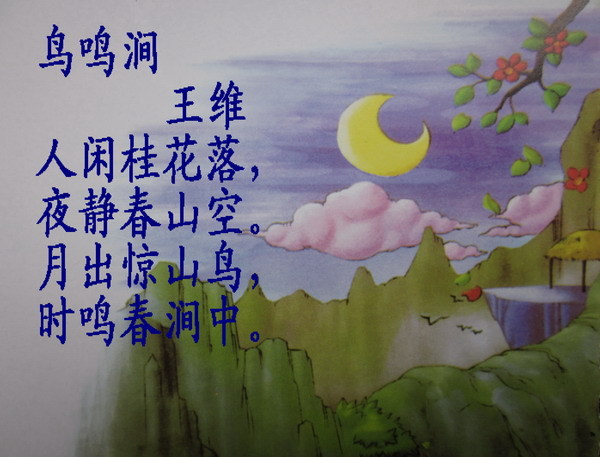 鸟鸣涧
王维
人闲桂花落，
夜静春山空。
月出惊山鸟，
时鸣春涧中。